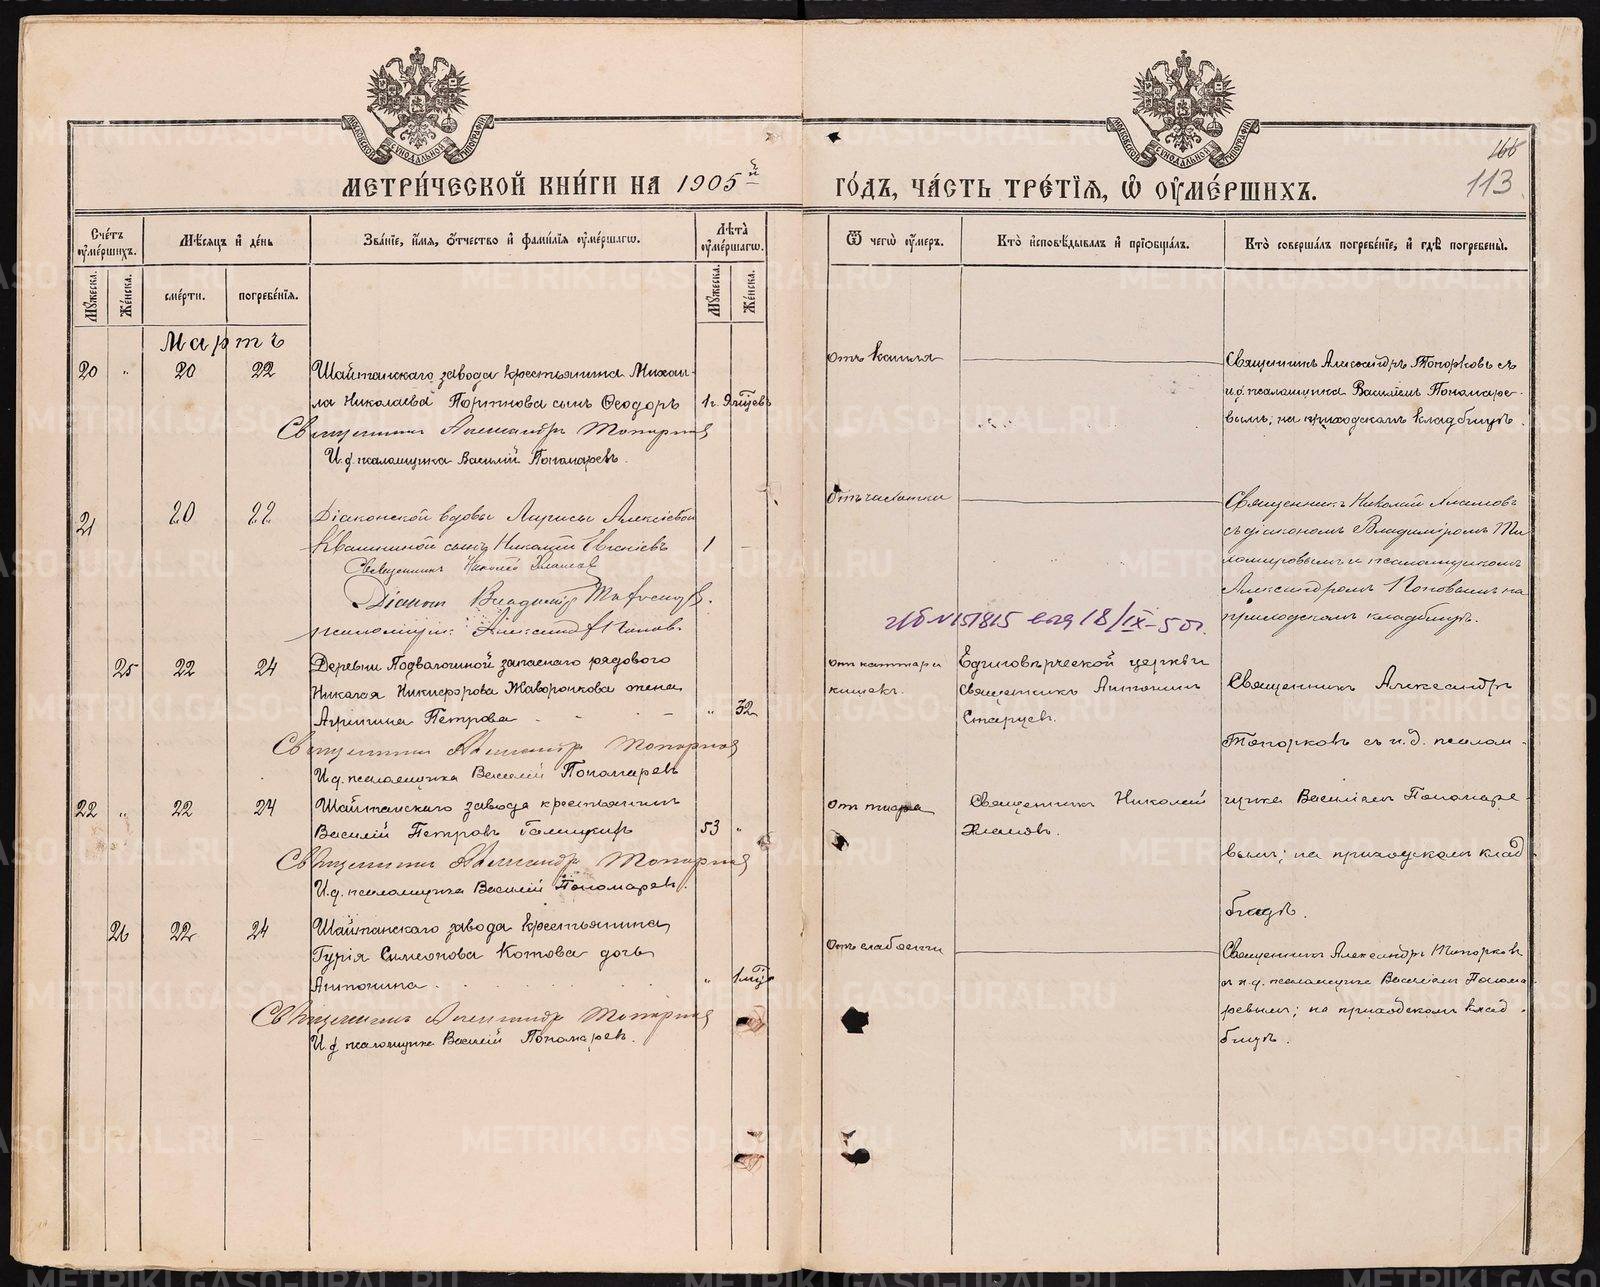 166
113
МЕТРИ́ЧЕСКОЙ КНИ́ГИ НА 1905й ГО́ДЪ, ЧА́СТЬ ТРЕ́ТІЯ, Ѡ ОУМЕ́РШИХЪ.
Сче́тъ оуме́ршихъ.
Мѣ́сяцъ и де́нь
Зва́ніе, и́мя, о́тчество и фами́лія оуме́ршагѡ.
Лѣ́та оуме́ршагѡ.
Ѿ чегѡ̀ оу́меръ.
Кто̀ исповѣ́дывалъ и пріобща́лъ.
Кто̀ соверша́лъ погребе́ніе, и гдѣ̀ погребены̀.
Му́жеска.
Же́нска.
сме́рти.
погребе́нія.
Му́жеска.
Же́нска.
Мартъ
20 " 20 22
Шайтанскаго завода крестьянина Михаи-
ла Николаева Портнова сынъ Ѳеодоръ
1 г. 9 мѣсцевъ
Священникъ Александръ Топорковъ
И.д. псаломщика Василій Пономаревъ.
отъ кашля
Священникъ Александръ Топорковъ съ
и.д. псаломщика Василіемъ Пономаре-
вымъ; на приходскомъ кладбищѣ.
21 20 22
Діаконской вдовы Ларисы Алексѣевой
Квашниной сынъ Николай Евгеніевъ
1 -
Священникъ Николай
Діаконъ Владиміръ
псаломщикъ Александръ Поповъ.
Отъ чахотки
Священникъ Николай
съ діакономъ Владиміромъ Ти-
и псаломщикомъ
Александромъ Поповымъ на
приходскомъ кладбищѣ.
18/IX-50г.
25 22 24
Деревни Подволошной запаснаго рядового
Николая Никифорова Жаворонкова жена
Агриппина Петрова
" 32
Священникъ Александръ Топорковъ
И.д. псаломщика Василій Пономаревъ
от каттара
кишекъ.
Единовѣрческой церкви
священникъ Антонинъ
Старцев.
Священникъ Александръ
Топорковъ съ и.д. псалом-
щика Василіем Пономаре-
вымъ; на приходскомъ клад-
бищѣ.
22 " 22 24
Шайтанскаго завода крестьянинъ
Василій Петровъ Галицкихъ
53 "
Священникъ Александръ Топорковъ
И.д. псаломщика Василій Пономаревъ.
От тифа
Священникъ Николай
26 22 24
Шайтанскаго завода крестьянина
Гурія Симеонова Котова дочь
Антонина
" 1 мѣс
Священникъ Александръ Топорковъ
И.д. псаломщика Василій Пономаревъ.
Отъ слабости
Священникъ Александръ Топорковъ
съ и.д. псаломщика Василіемъ Понома-
ревымъ; на приходскомъ клад-
бищѣ.
METRIKI.GASO-URAL.RU